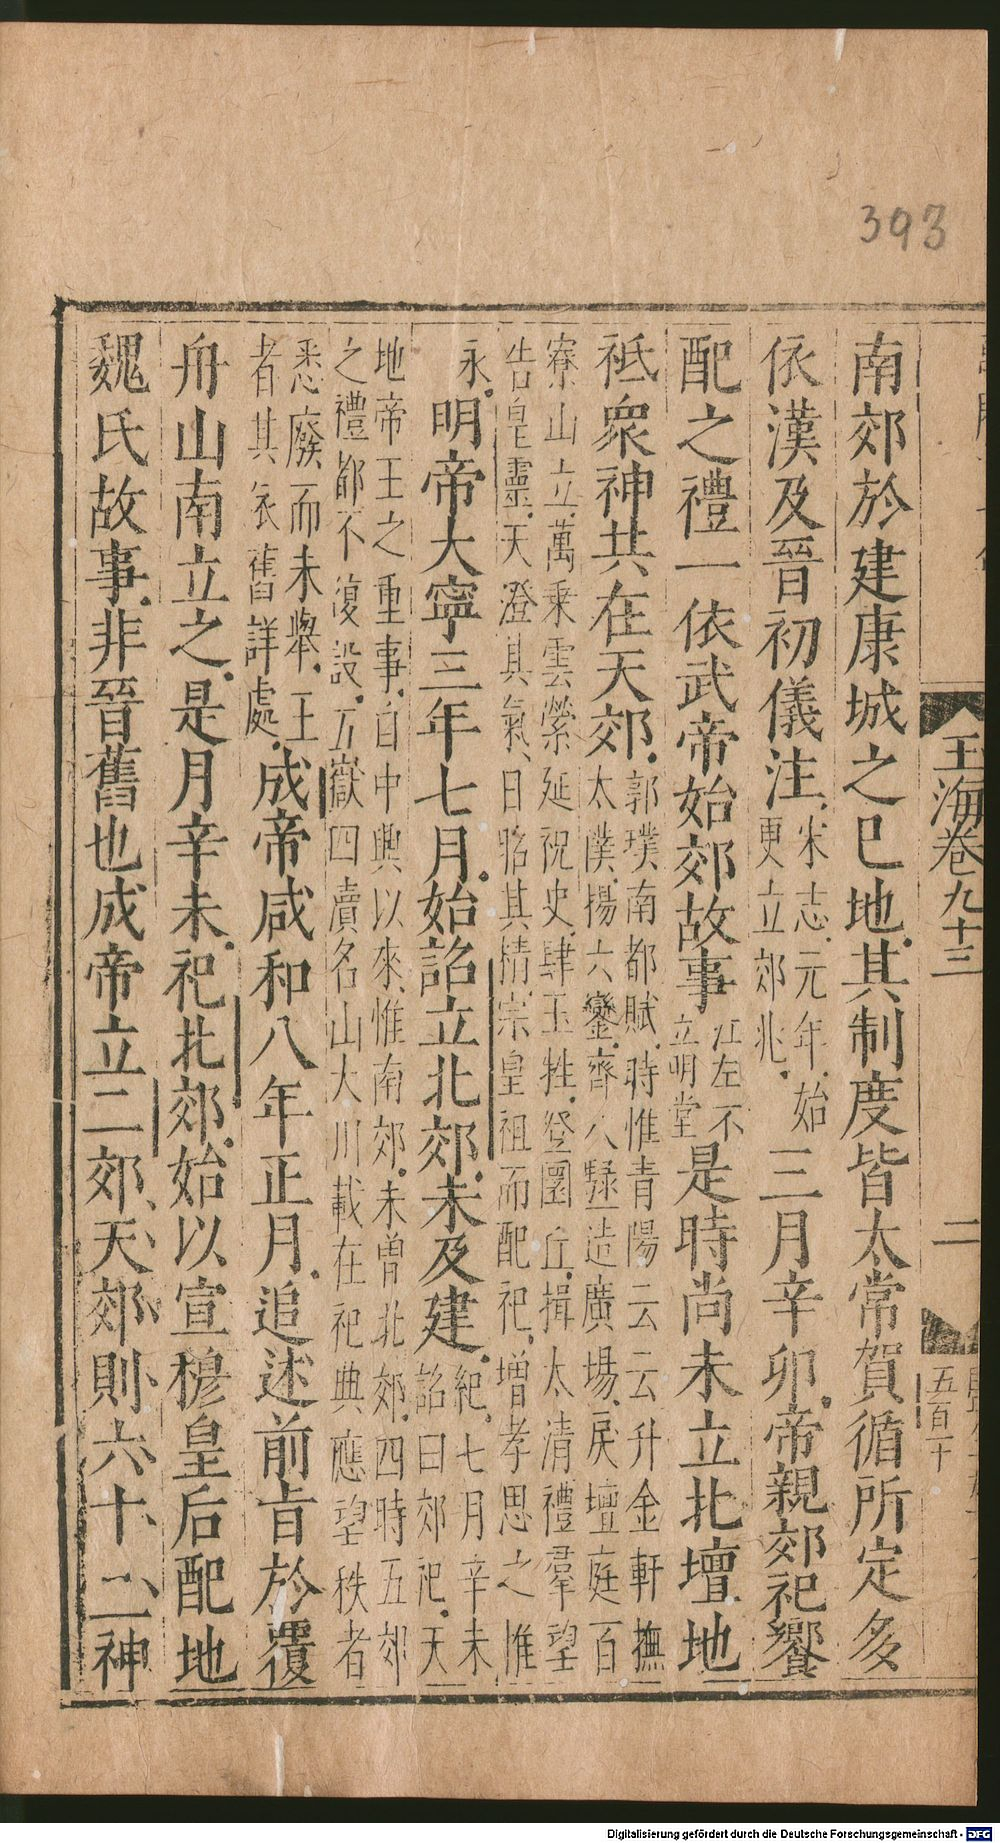 393
玉海卷九十三
二
五百十
南郊於建康城之巳地其制度皆太常賀循所定多
依漢及晉初儀注宋志元年始
更立郊兆三月辛卯帝親郊祀饗
配之禮一依武帝始郊故事江左不
立明堂是時尚未立北壇地
祇衆神共在天郊郭璞南都賦時惟青陽云云升金軒撫
太僕揚六鑾齊八騄造廣場戾壇庭百
寮山立萬乗雲縈延祝史肆玉牲登圜丘揖太清禮羣望
告皇靈天澄其氣日昭其精宗皇祖而配祀増孝思之惟
永明帝大寧三年七月始詔立北郊未及建紀七月辛未
詔曰郊祀天
地帝王之重事自中興以來惟南郊未曽北郊四時五郊
之禮都不復設五嶽四瀆名山大川載在祀典應望秩者
悉廢而未舉主
者其依舊詳處成帝咸和八年正月追述前旨於覆
舟山南立之是月辛未祀北郊始以宣穆皇后配地
魏氏故事非晉舊也成帝立二郊天郊則六十二神
Digitalisierung gefördert durch die Deutsche Forschungsgemeinschaft - DFG